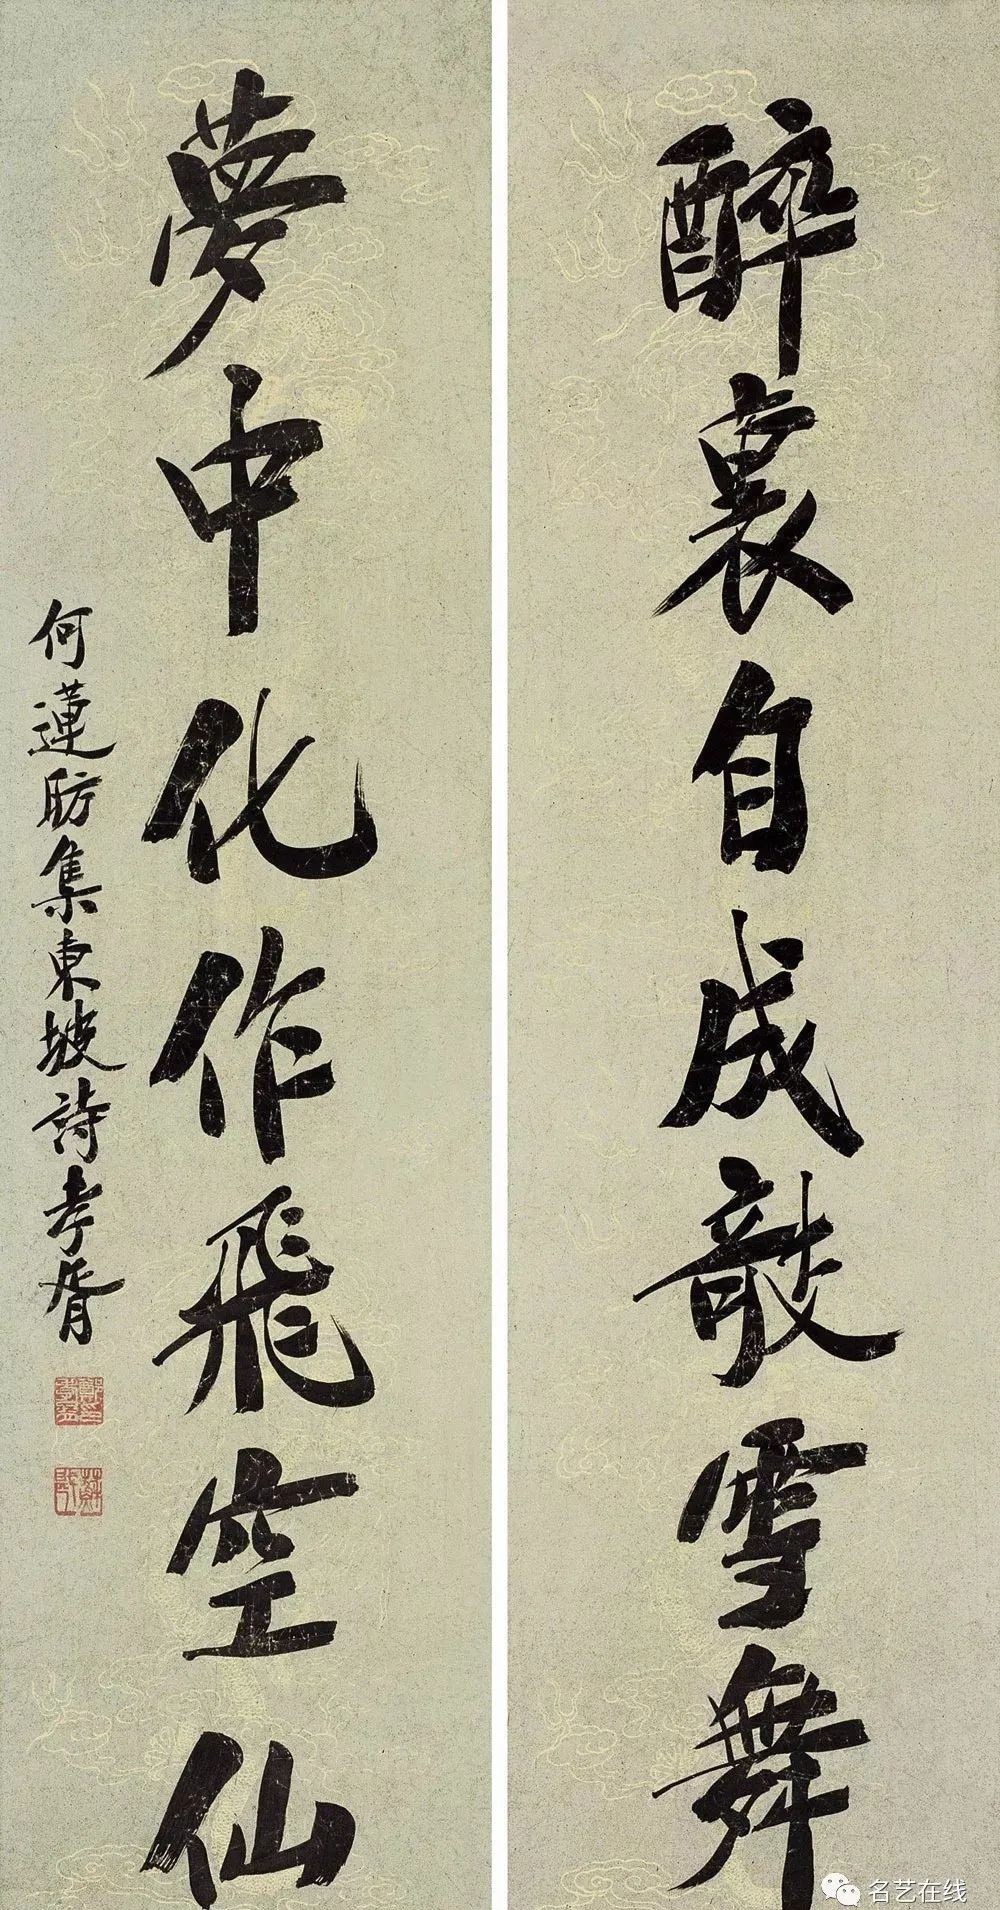 醉裏自成敲雪舞
夢中化作飛空仙
何蓮舫集東坡詩孝胥
鄭印孝胥
蘇戡
名艺在线